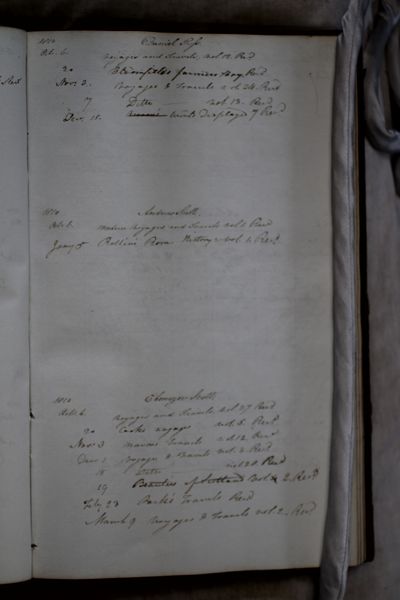 1810 Daniel
Octr. 6. voyages and travels, vol 12. Recd
20 Bloomfields farmers boy Recd
Novr. 3. Voyages & Travels vol 24 Recd
17 Ditto vol 13. Recd
Decr. 15. World Displayed 7 Recd
1810 Andrew Scott,
Octr. 6. voyages and travels vol 1 Recd
Jany 5 Rollins History vol. 1. Recd
1810 Ebenezer Scott,
Octr. 6. voyages and travels vol 27 Recd
20 Cooks voyages vol. 5. Recd
Novr. 3 travels vol 12. Recd
Decr. 1 Voyages & travels vol. 2. Recd
15 Ditto vol 20. Recd
19 Beauties of Scotland vol 2. Recd
Feby 23 Parks Travels Recd
March 9 Voyages & Travels vol 2. Recd